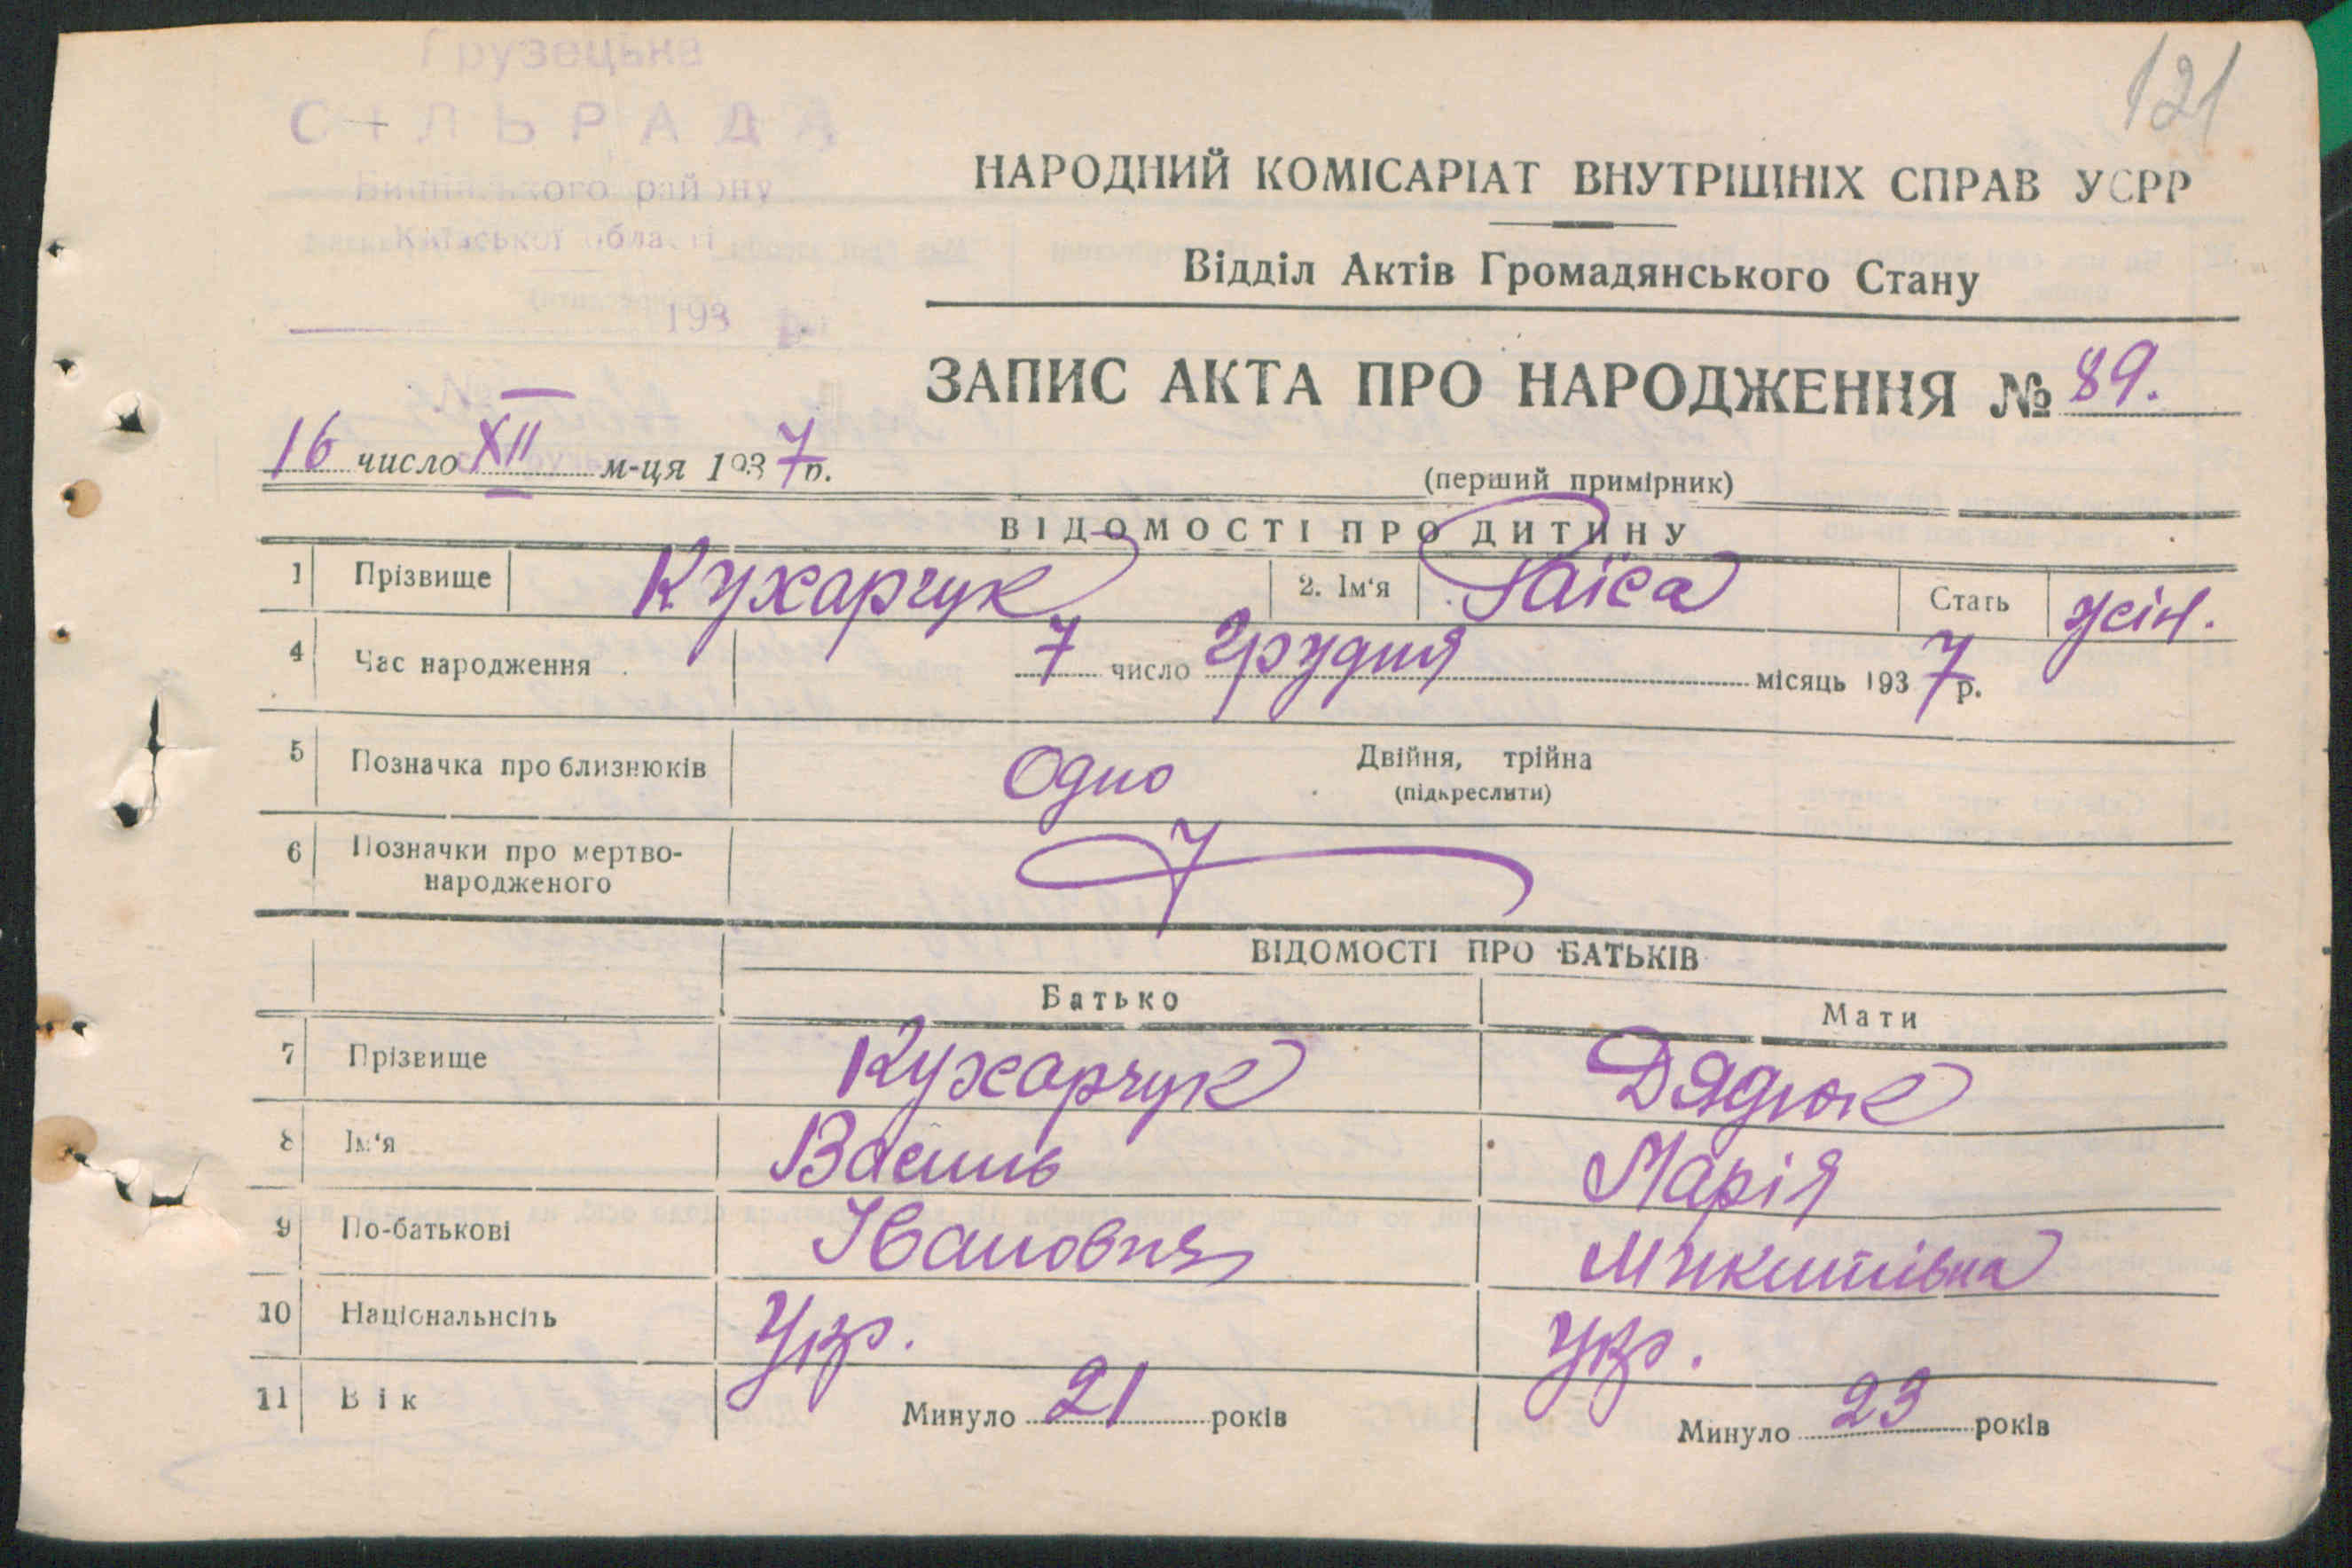 Грузецька
СІЛЬРАДА
району
Київської області
193 р.
121
НАРОДНИЙ КОМІСАРІАТ ВНУТРІШНІХ СПРАВ УСРР
Відділ Актів Громадянського Стану
ЗАПИС АКТА ПРО НАРОДЖЕННЯ № 89.
16 число XII м-ця 1937 р.
(перший примірник)
ВІДОМОСТІ ПРО ДИТИНУ
1 Прізвище Кухарчук 2. Ім'я Раїса Стать жін.
4 Час народження 7 число грудня місяць 1937 р.
5 Позначка про близнюків Одно Двійня, трійна
(підкреслити)
6 Позначки про мертво-
народженого
ВІДОМОСТІ ПРО БАТЬКІВ
Батько Мати
7 Прізвище Кухарчук Дядюк
8 Ім'я Василь Марія
9 По-батькові Микитівна
10 Національність Укр. Укр.
11 Вік Минуло 21 років Минуло 23 років